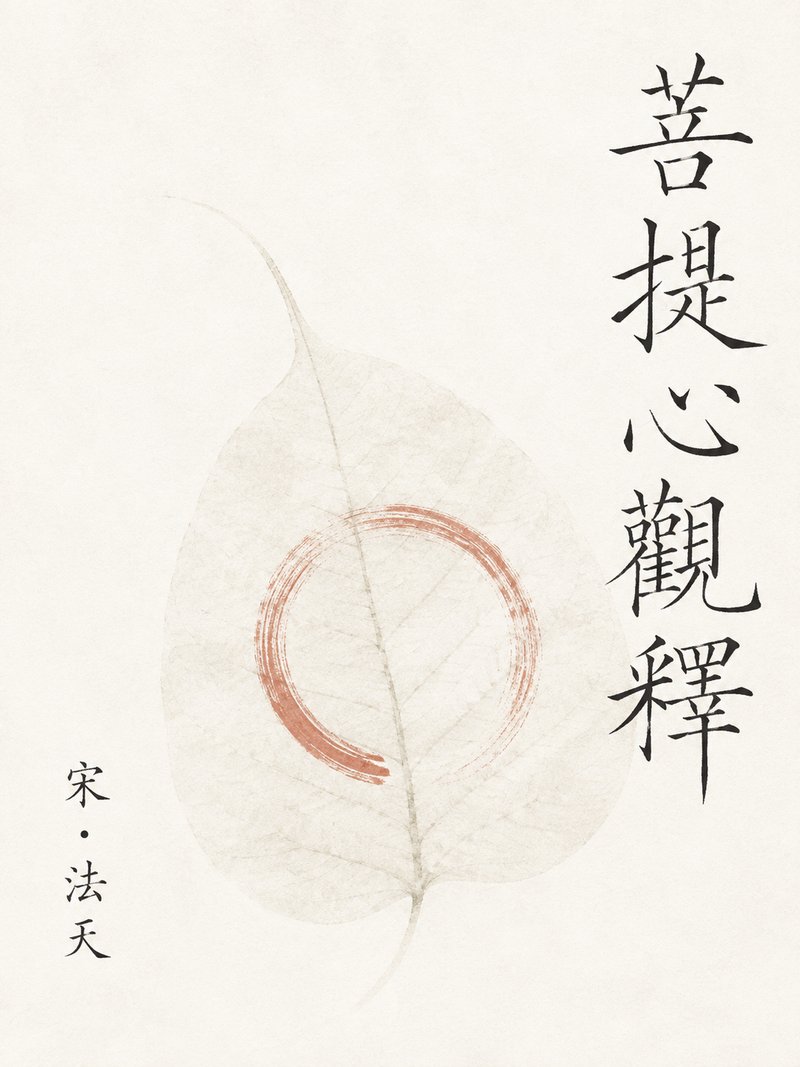 菩提心觀釋
宋·法天